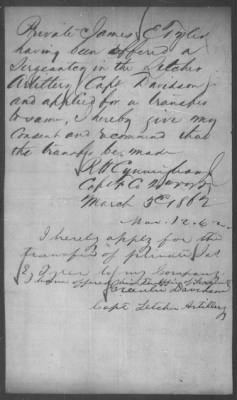 Private James E Tyler
having been offered a
Sergeantcy in the Letcher
Artillery (Capt Davidson)
and applied for a transfer
to same, I hereby give my
Consent and recommend that
the transfer be made
R H Cunningham Jr
Capt Co
March 3d 1862
Mar. 12. 62.
I hereby apply for the
transfer of private Jas
E Tyler to my Company
he being offered the
Greenlee Davidson
Capt Letcher Artillery